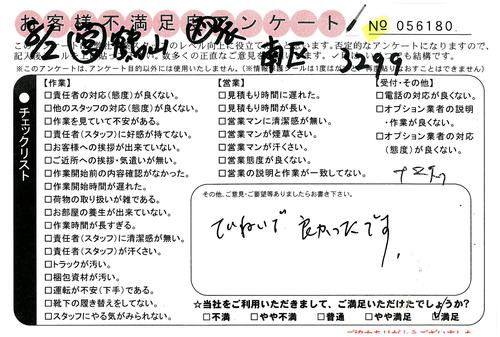 お客様不満足度アンケート
№ 056180
8/2 鶴山 南区 3299
【作業】
□責任者の対応(態度)が良くない。
□他のスタッフの対応(態度)が良くない。
□作業を見ていて不安がある。
□責任者(スタッフ)に好感が持てない。
□お客様への挨拶が出来ていない。
□ご近所への挨拶・気遣いが無い。
□作業開始前の内容確認がなかった。
□作業開始時間が遅れた。
□荷物の取り扱いが雑である。
□お部屋の養生が出来ていない。
□作業時間が長すぎる。
□責任者(スタッフ)に清潔感が無い。
□責任者(スタッフ)が汗くさい。
□トラックが汚い。
□梱包資材が汚い。
□運転が不安(下手)である。
□靴下の履き替えをしてない。
□スタッフにやる気がみられない。
チェックリスト
【営業】
□見積もり時間に遅れた。
□見積もり時間が長い。
□営業マンに清潔感が無い。
□営業マンが煙草くさい。
□営業マンが汗くさい。
□営業態度が良くない。
□営業の説明と作業が一致してない。
【受付・その他】
□電話の対応が良くない。
□オプション業者の説明
・作業が良くない。
□オプション業者の対応
(態度)が良くない。
その他、ご意見・ご要望等ありましたらお書き下さい。
ていねいで 良かったです。
☆当社をご利用いただきまして、ご満足いただけたでしょうか?
□不満 □やや不満 □普通 □やや満足 ☑満足
ご協力ありがとうございました